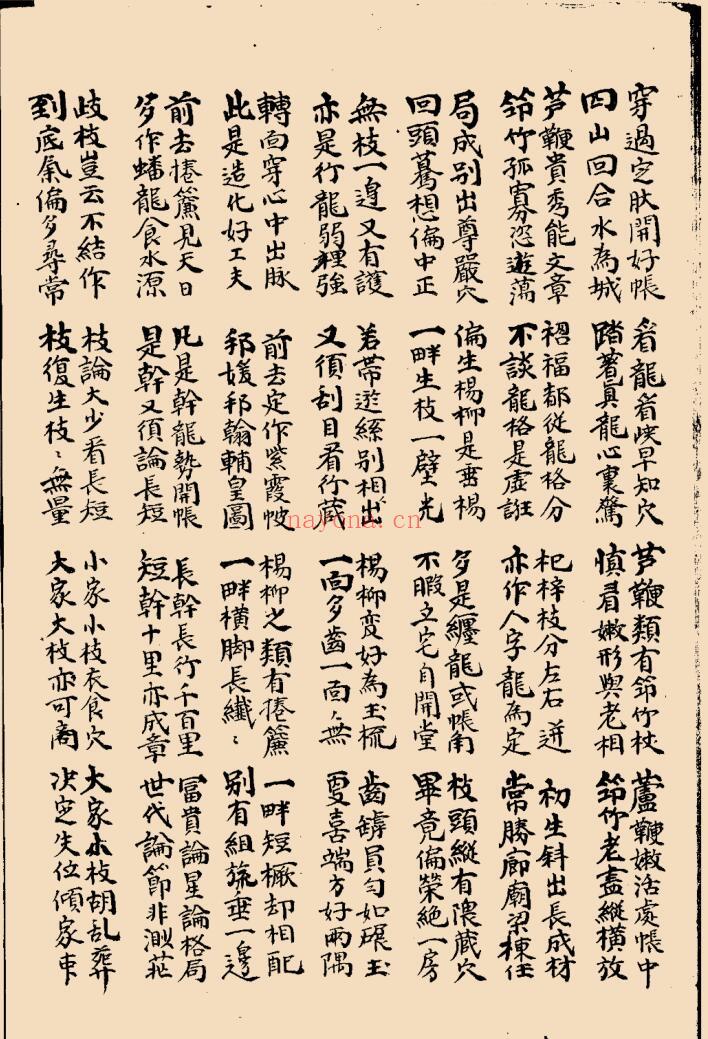 穿過定肽開好帳
四山回合水為城
看龍看峽早知穴
踏著真龍心裏驚
芦鞭類有笻竹杖
慎看嫩形與老相
蘆鞭嫩活處帳中
笻竹老盡縱橫放
芦鞭貴秀能文章
笻竹孤寡恣遊蕩
禍福都從龍格分
不談龍格是虛誑
杞梓枝分左右迸
亦作人字龍為定
初生斜出長成材
常勝廊廟梁棟任
局成別出尊嚴穴
回頭驀想偏中正
偏生楊柳是垂楊
一畔生枝一壁光
多是纏龍或帳角
不暇立宅自開堂
枝頭縱有隈藏穴
畢竟偏榮絕一房
無枝一邊又有護
亦是行龍弱裡強
若帶遊絲別相出
又須刮目看行藏
楊柳變好為玉梳
一面多齒一面〻無
齒鎼員勻如碾玉
更喜端方好兩隅
轉面穿心中出脉
此是造化好工夫
前去定作紫霞帔
邦媛邦翰輔皇圖
楊柳之類有捲簾
一畔橫脚長纖〻
一畔短橛却相配
別有組旒垂一邊
前去捲簾見天日
多作蟠龍食水源
凡是幹龍勢開帳
是幹又須論長短
長幹長行千百里
短幹十里亦成章
冨貴論星論格局
世代論節非測茫
歧枝豈云不結作
到底氣偏多尋常
枝論大少看長短
枝復生枝〻無量
小家小枝衣食穴
大家大枝亦可商
大家小枝胡乱葬
决定失位傾家事
nayona.cn